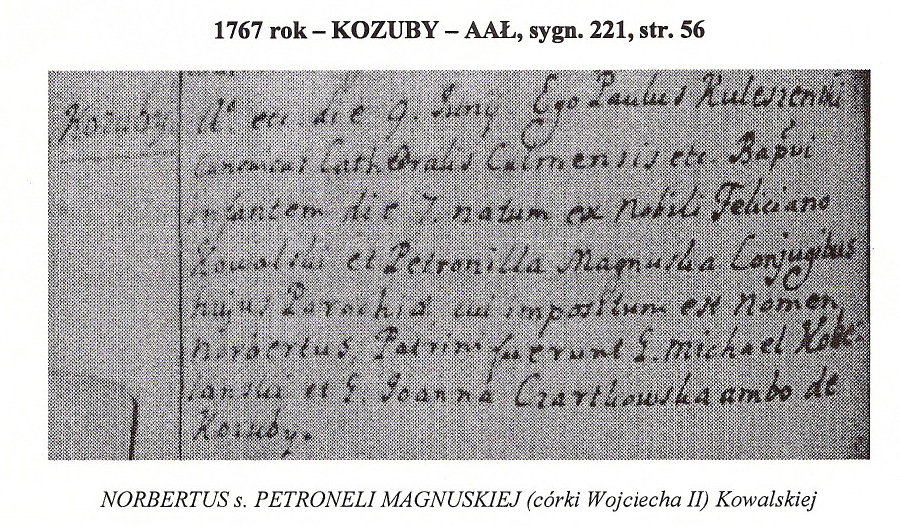 1767 rok – KOZUBY – AAŁ, sygn. 221, str. 56
Kozuby
die 9. Junÿ Ego Paulus Kuleszenski
Canonicus Cathedralis Culmensis etc Bapvi
infantem die 7. natum ex Nobili Feliciano
Kowalski et Petronilla Magnuska Conjugibus
hujus Parochiæ, cui impositum est Nomen
Norbertus, Patrini fuerunt G. Michael Kobe-
lanski et G. Joanna Czartkowska ambo de
Kozuby.
NORBERTUS s. PETRONELI MAGNUSKIEJ (córki Wojciecha II) Kowalskiej